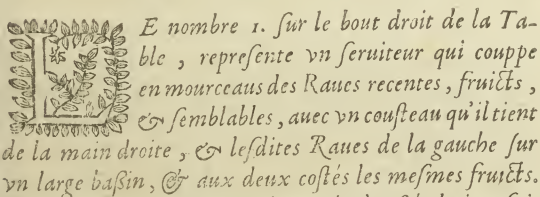 LE nombre 1. ſur le bout droit de la Ta-
ble , repreſente vn ſeruiteur qui couppe
en mourceaus des Raues recentes, fruicts ,
& ſemblables , auec vn couſteau qu'il tient
de la main droite , & leſdites Raues de la gauche ſur
vn large baßin, & aux deux coſtés les meſmes fruicts.